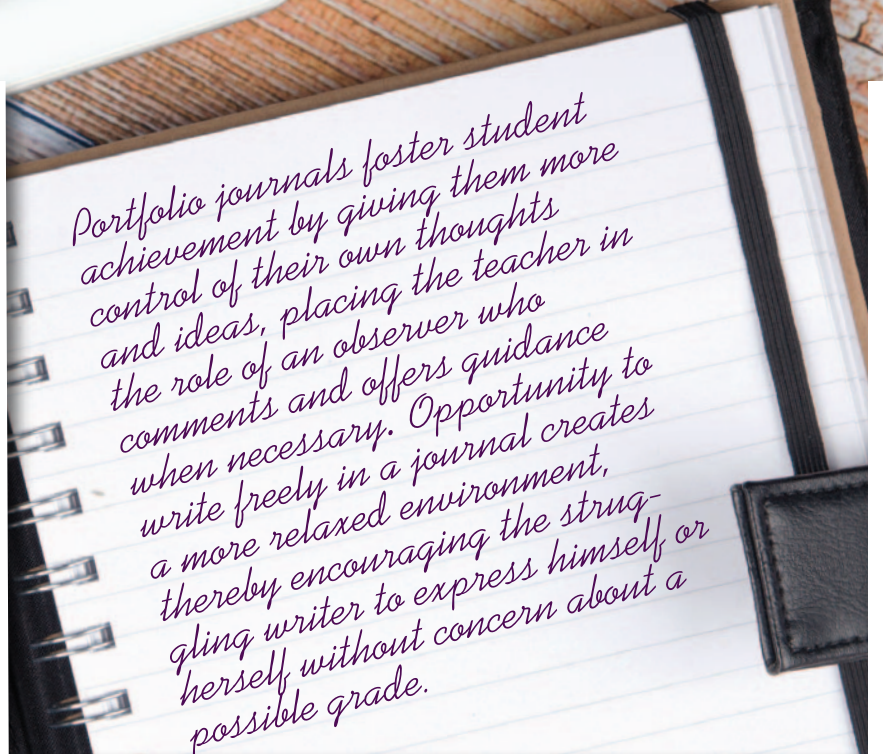 Portfolio journals foster student
achievement by giving them more
control of their own thoughts
and ideas, placing the teacher in
the role of an observer who
comments and offers guidance
when necessary. Opportunity to
write freely in a journal creates
a more relaxed environment,
thereby encouraging the strug-
gling writer to express himself or
herself without concern about a
possible grade.